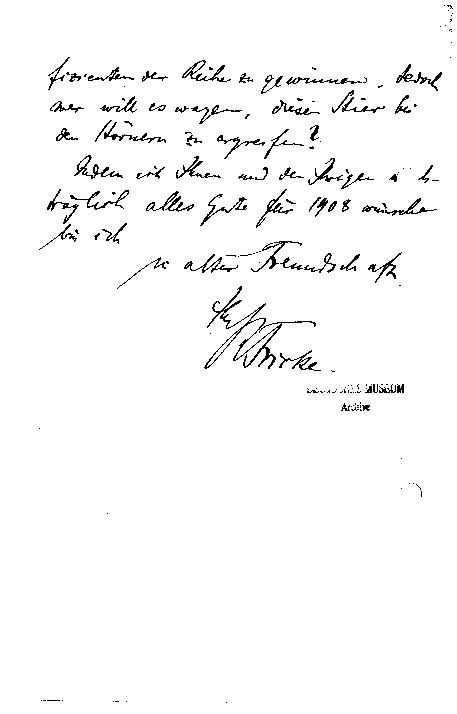 fizienten der Reihe zu gewinnen. Jedoch
wer will es wagen, diesen Stier bei
den Hörnern zu ergreifen?
Indem ich Ihnen und den Ihrigen
träglich alles Gute für 1908 wünsche
bin ich
in alter Freundschaft
Ihr
Fricke.
MUSEUM
Archive